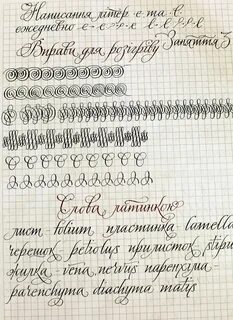 Написання літер е та в
ежедневно е е е в в в в
Вправа для розчерку Заняття 3
Слова латинкою
лист folium пластинка lamella
черешок petiolus прилисток stipu
жилка vena, nervus паренхіма
parenchyma diachyma matis